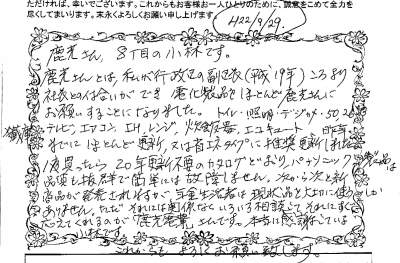 ただければ、幸いでございます。これからもお客様お一人ひとりのために、誠意をこめて全力を
尽くしてまいります。末永くよろしくお願い申し上げます。 H22/9/29.
鹿光さん、8丁目の小林です。
鹿光さんとは、私が行政区の副区長(平成19年)ころより
社長との付合いができ 電化製品をほとんど鹿光さんに
お願いすることになりました。トイレ・照明・デジカメ・
テレビ、エアコン、エコキュート 昨年
までにほとんど更新、又は省エネタイプに推奨更新しました
1度買ったら20年更新不要のカタログどおり、パナソニック製品は
品質も抜群で簡単には故障しません。次から次と新
商品が発売されますが 年金生活者は現状品を大切に使うしか
ありません。ただ それには関係なくいろいろ相談してそれにすぐ
応えてくれるのが「鹿光電業」さんです。本当に感謝している
小林です。
これからもよろしくお願い致します。